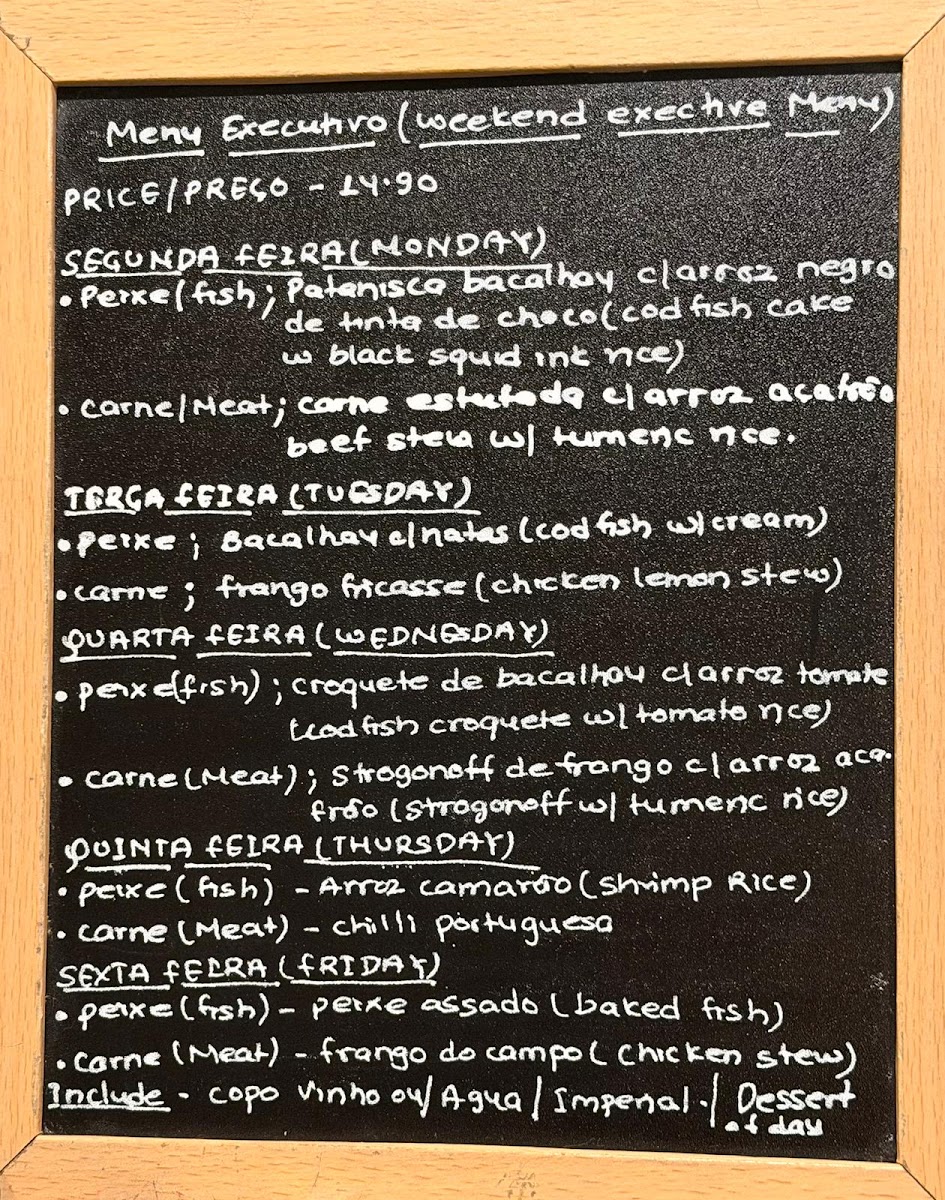 Menu Executivo (weekend exective Menu)
PRICE/PREÇO - 14.90
SEGUNDA FEIRA (MONDAY)
• Peixe (fish; Patanisca bacalhau c/arroz negro
de tinta de choco (cod fish cake
w black squid ink rice)
• carne/Meat; carne estufada c/arroz acafrão
beef stew w/ tumeric rice.
TERÇA FEIRA (TUESDAY)
• peixe; Bacalhau c/natas (cod fish w/cream)
• carne; frango fricasse (chicken lemon stew)
QUARTA FEIRA (WEDNESDAY)
• peixe(fish); croquete de bacalhau c/arroz tomate
(cod fish croquete w/ tomato rice)
• carne (Meat); Strogonoff de frango c/arroz aca-
frão (strogonoff w/ tumeric rice)
QUINTA FEIRA (THURSDAY)
• peixe (fish) - Arroz camarão (shrimp Rice)
• carne (Meat) - chilli portuguesa
SEXTA FEIRA (FRIDAY)
• peixe (fish) - peixe assado (baked fish)
• carne (Meat) - frango do campo (chicken stew)
Include - copo vinho ou/Agua/Imperial./Dessert
of day